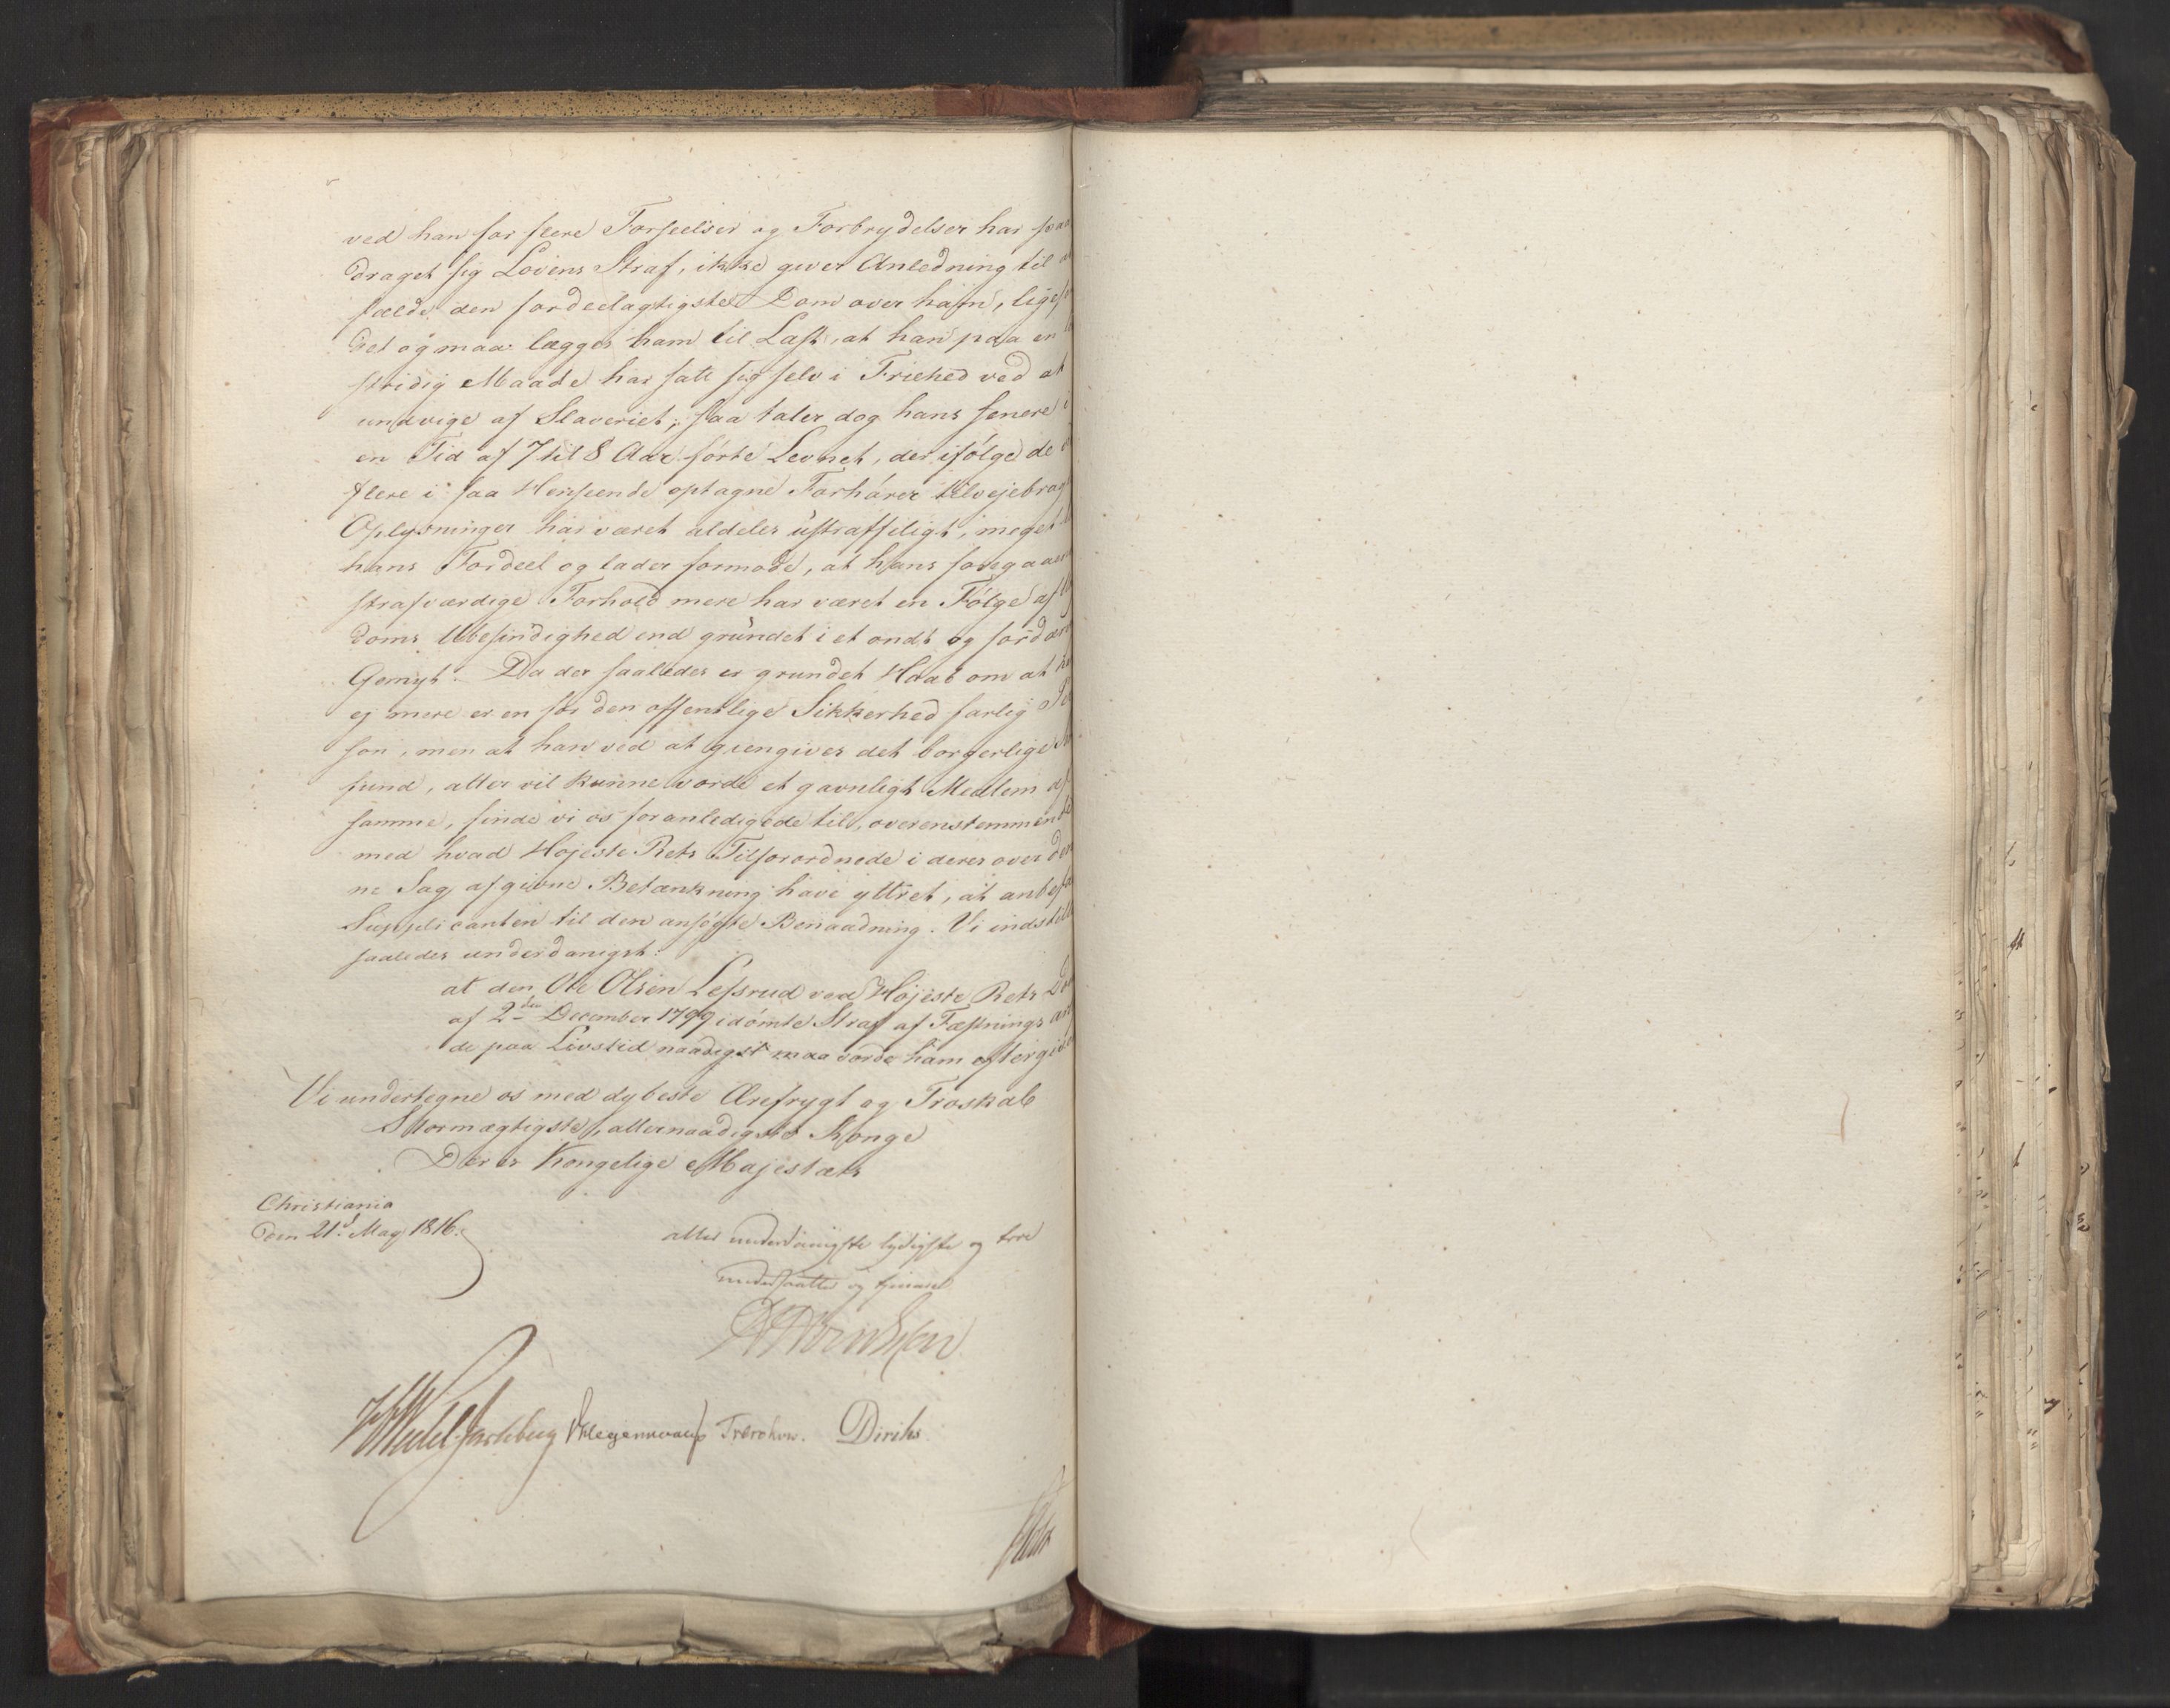 ved han for flere Forseelser og Forbrydelser har paa
draget sig Lovens Straf, ikke giver Anledning til at
fælde den fordeelagtigste Dom over ham, lige
det og maa lægges ham til Last, at han paa en
stridig Maade har satt sig selv i Friehed ved at
undvige af Slaveriet; saa taler dog hans senere i
en Tid af 7 til 8 Aar førte Levnet, der ifølge de
flere i saa Henseende optagne Forhører tilvejebrag
Oplysninger har været aldeles ustraffeligt, meget
hans Fordeel og lader formode, at hans foregaaen
strafværdige Forhold mere har været en Følge af
doms Ubesindighed end grundet i et ondt og fordær
Gemyt. Da der saaledes er grundet Haab om at
ej mere er en for den offentlige Sikkerhed farlig Per
son, men at han ved at giengives det borgerlige
fund, atter vil kunne vorde et gavnligt Medlem af
samme, finde vi os foranledigede til, overenstemmende
med hvad Højeste Rets Tilforordnede i deres over den
ne Sag afgivne Betænkning have yttret, at anbefa
Supplicanten til den ansøgte Benaadning. Vi indstill
saaledes underdanigst:
at den Ole Olsen Lessrud ved Højeste Rets Do
af 2den December 1799 idømte Straf af Fæstnings ar
de paa Livstid naadigst maa vorde ham eftergive
Vi undertegne os med dybeste Ærefrygt og Troskab
Stormægtigste, allernaadigste Konge
Deres Kongelige Majestæts
Christiania
den 21d May 1816.
aller underdanigste lydigste og troe
undersaatter og tjenere
Wedel Jarlsberg Krieg Treschow. Diriks